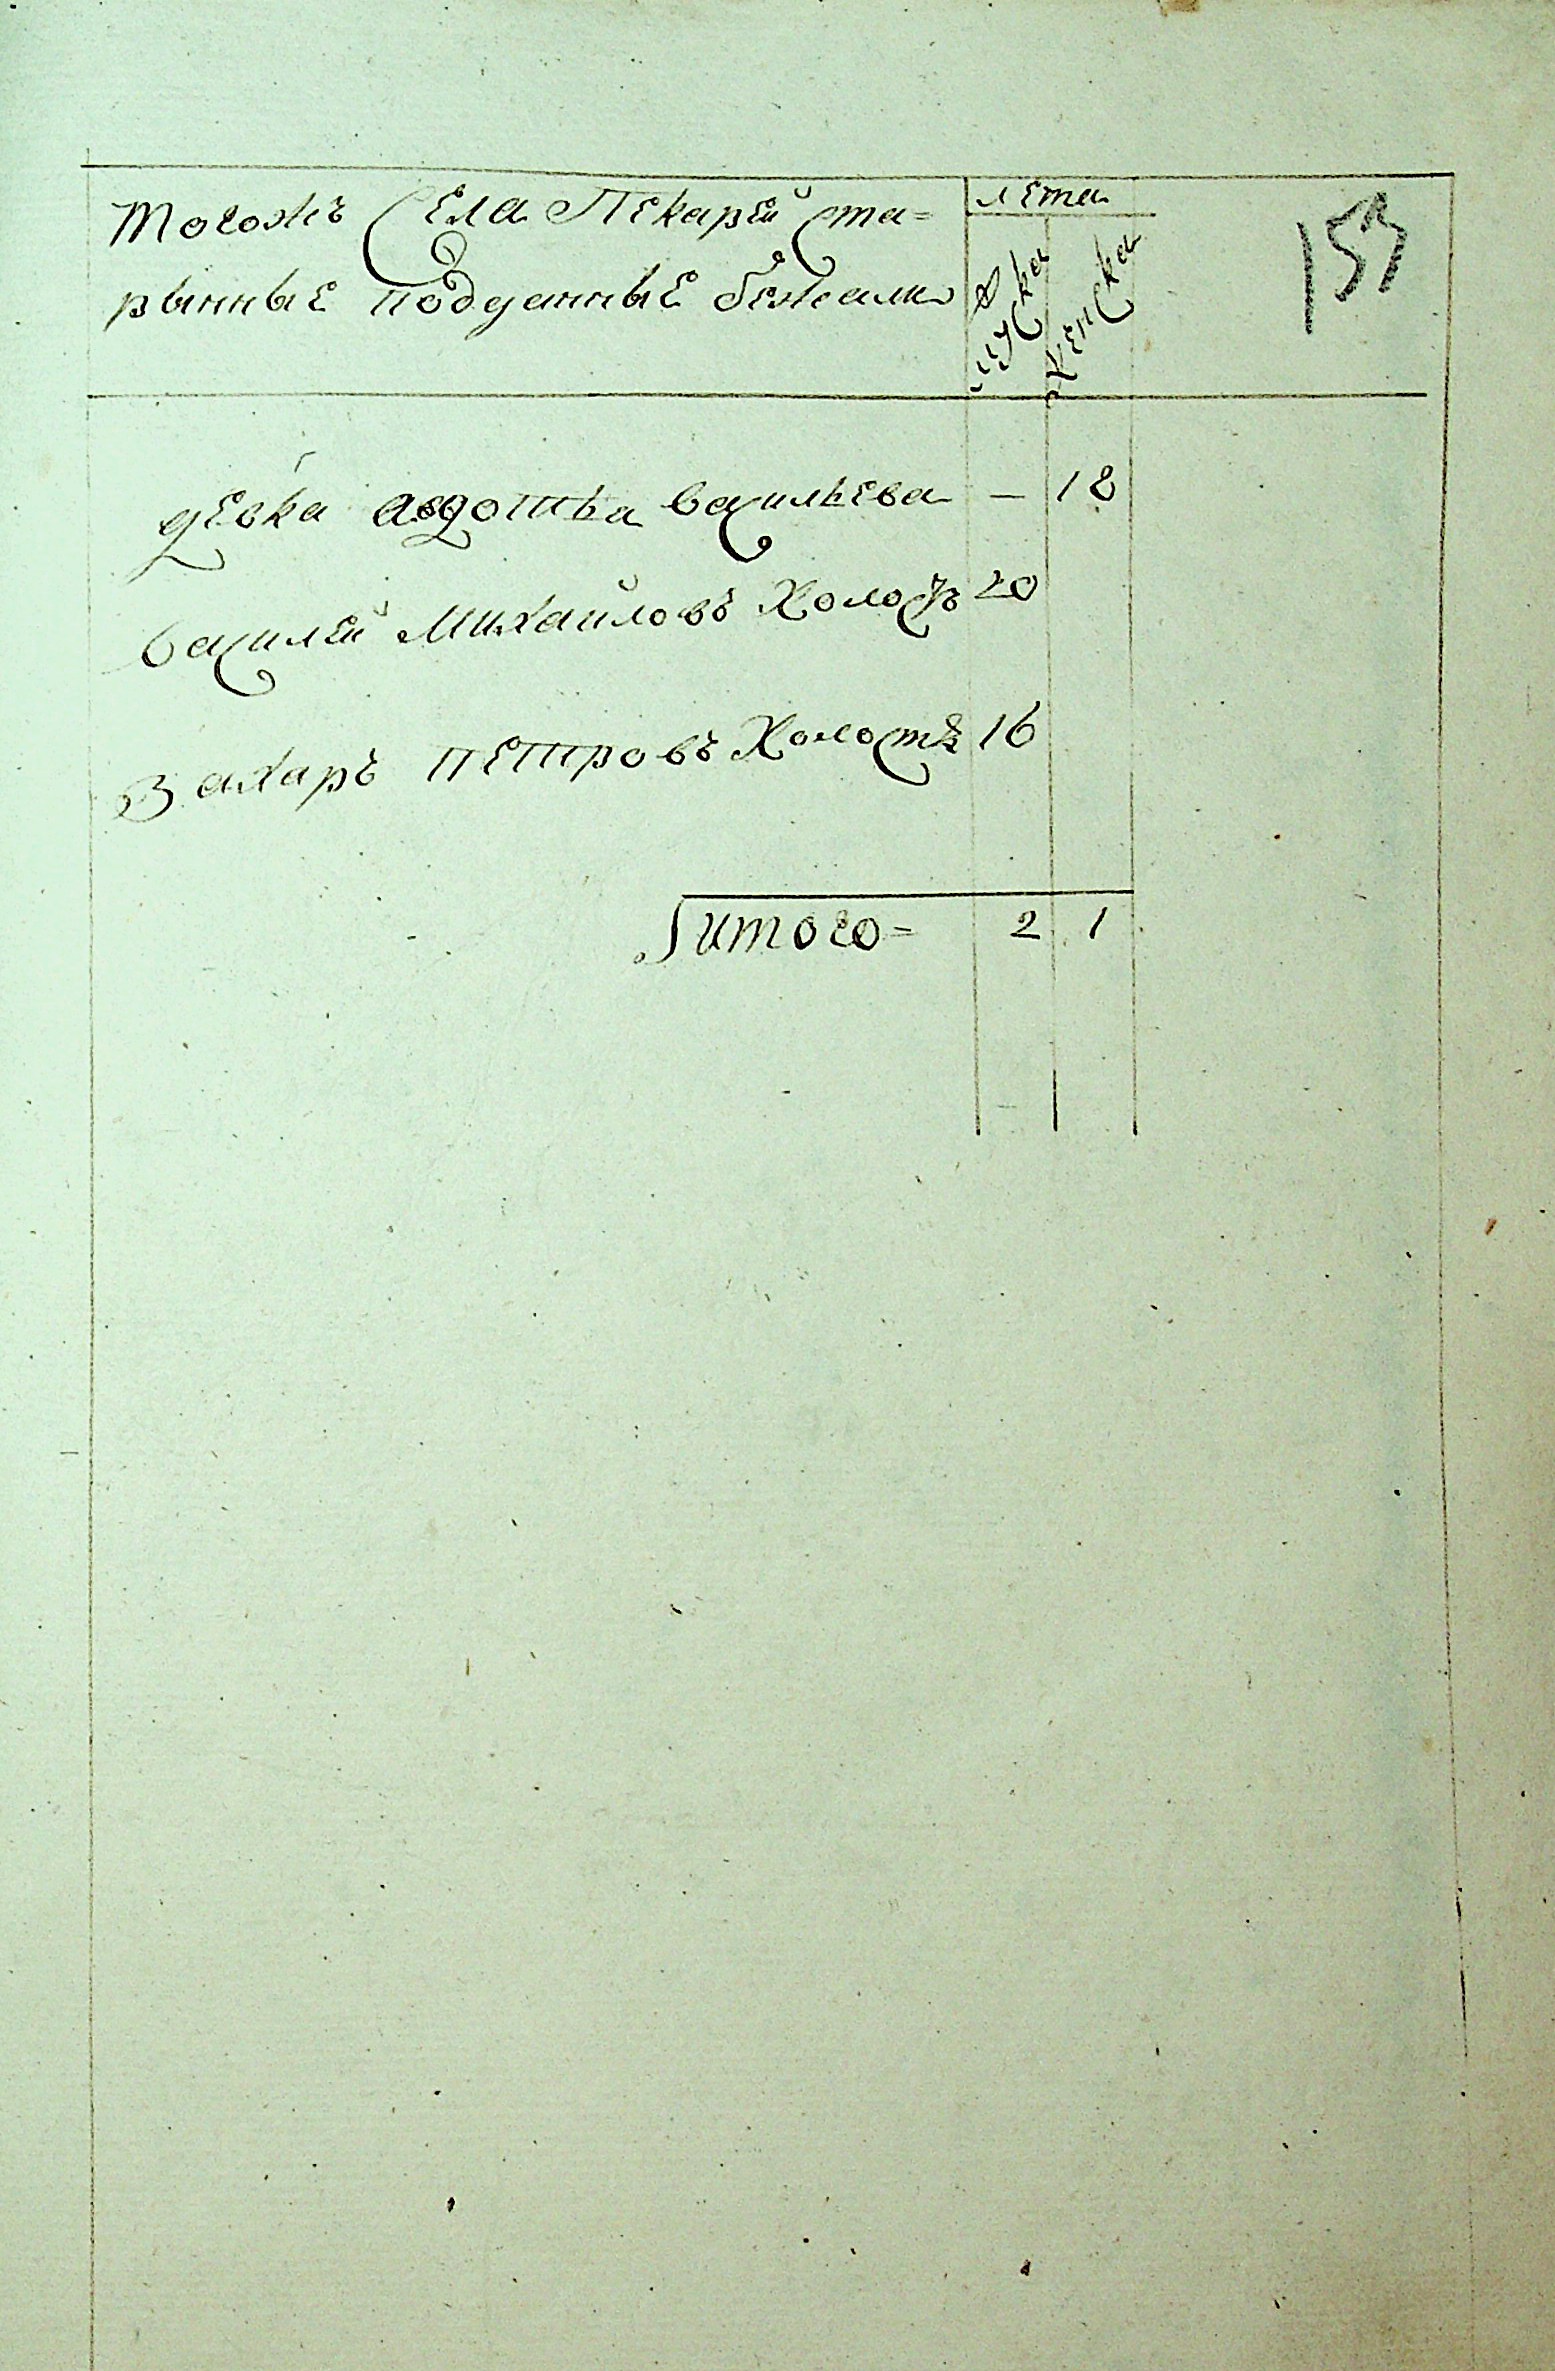 Тогожъ Села Пекарей ста=
рынные подданные бежали
лета
мужска
женска
153
девка авдотья васильева — 18
василей Михаиловъ Холостъ 20
Захаръ петровъ Холостъ 16
итого = 2 1